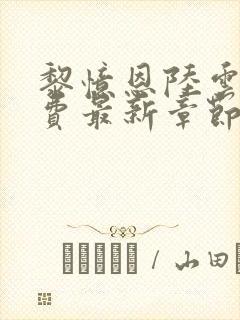 黎憶恩陸雲
費最新章節
/ 山田